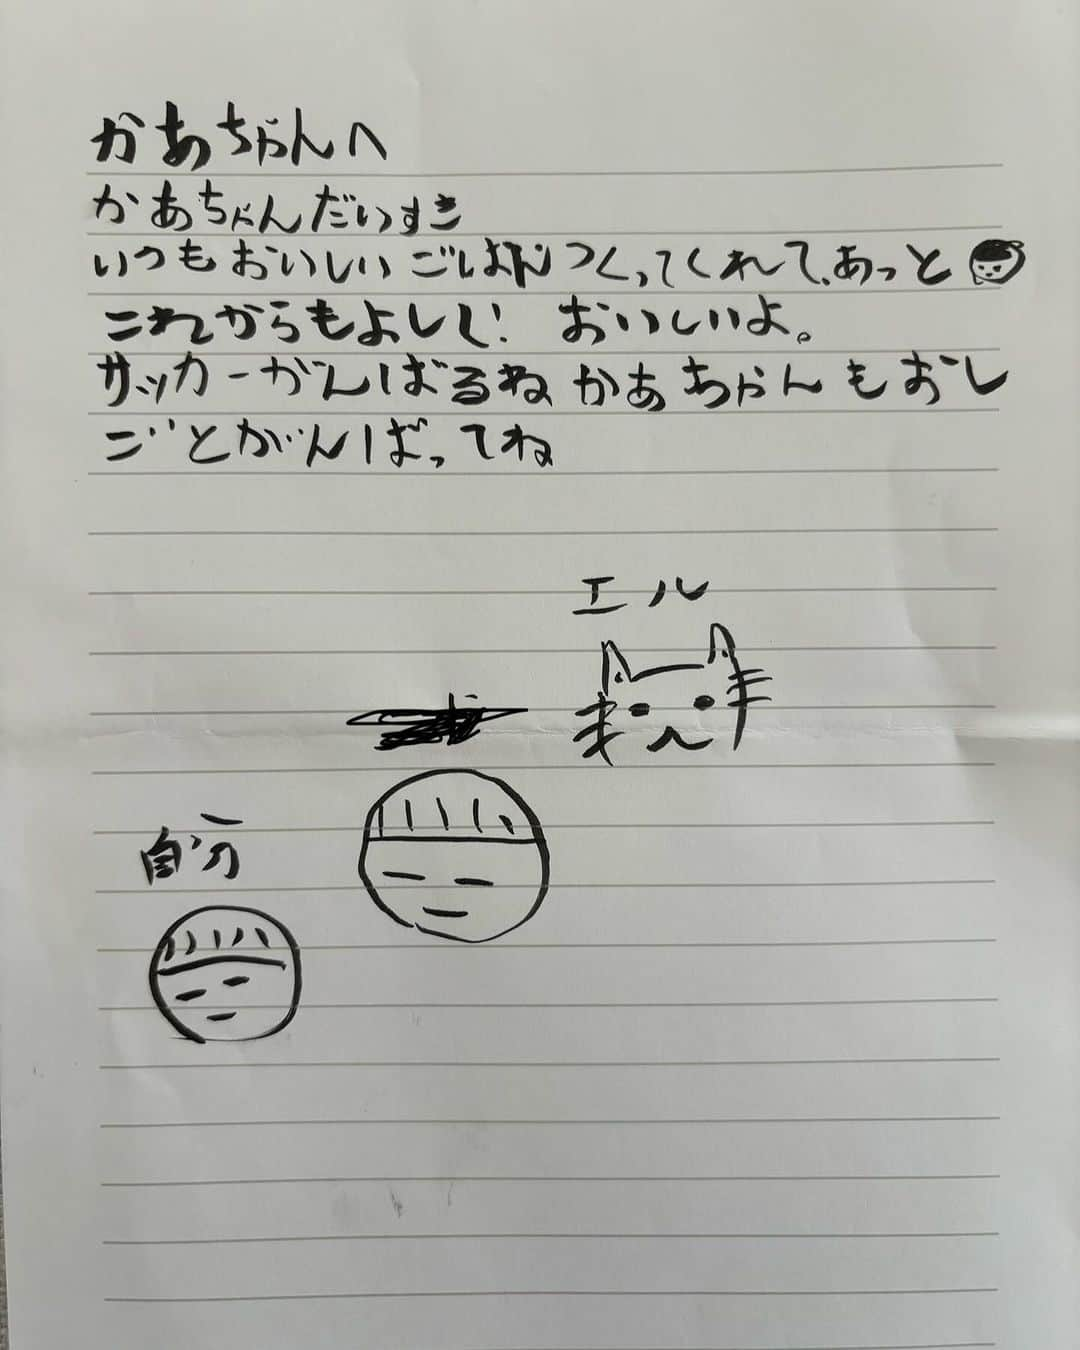 かあちゃんへ
かあちゃんだいすき
いつもおいしいごはんつくってくれて、あっと
これからもよしし! おいしいよ。
サッカーがんばるねかあちゃんもおし
ごとがんばってね
エル
自分